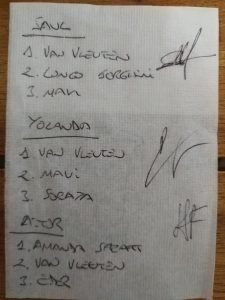 1. VAN VLEUTEN
2. LONGO BORGHINI
3. MAVI
YOLANDA
1. VAN VLEUTEN
2. MAVI
3.
AITOR
1. AMANDA SPRATT
2. VAN VLEUTEN
3.